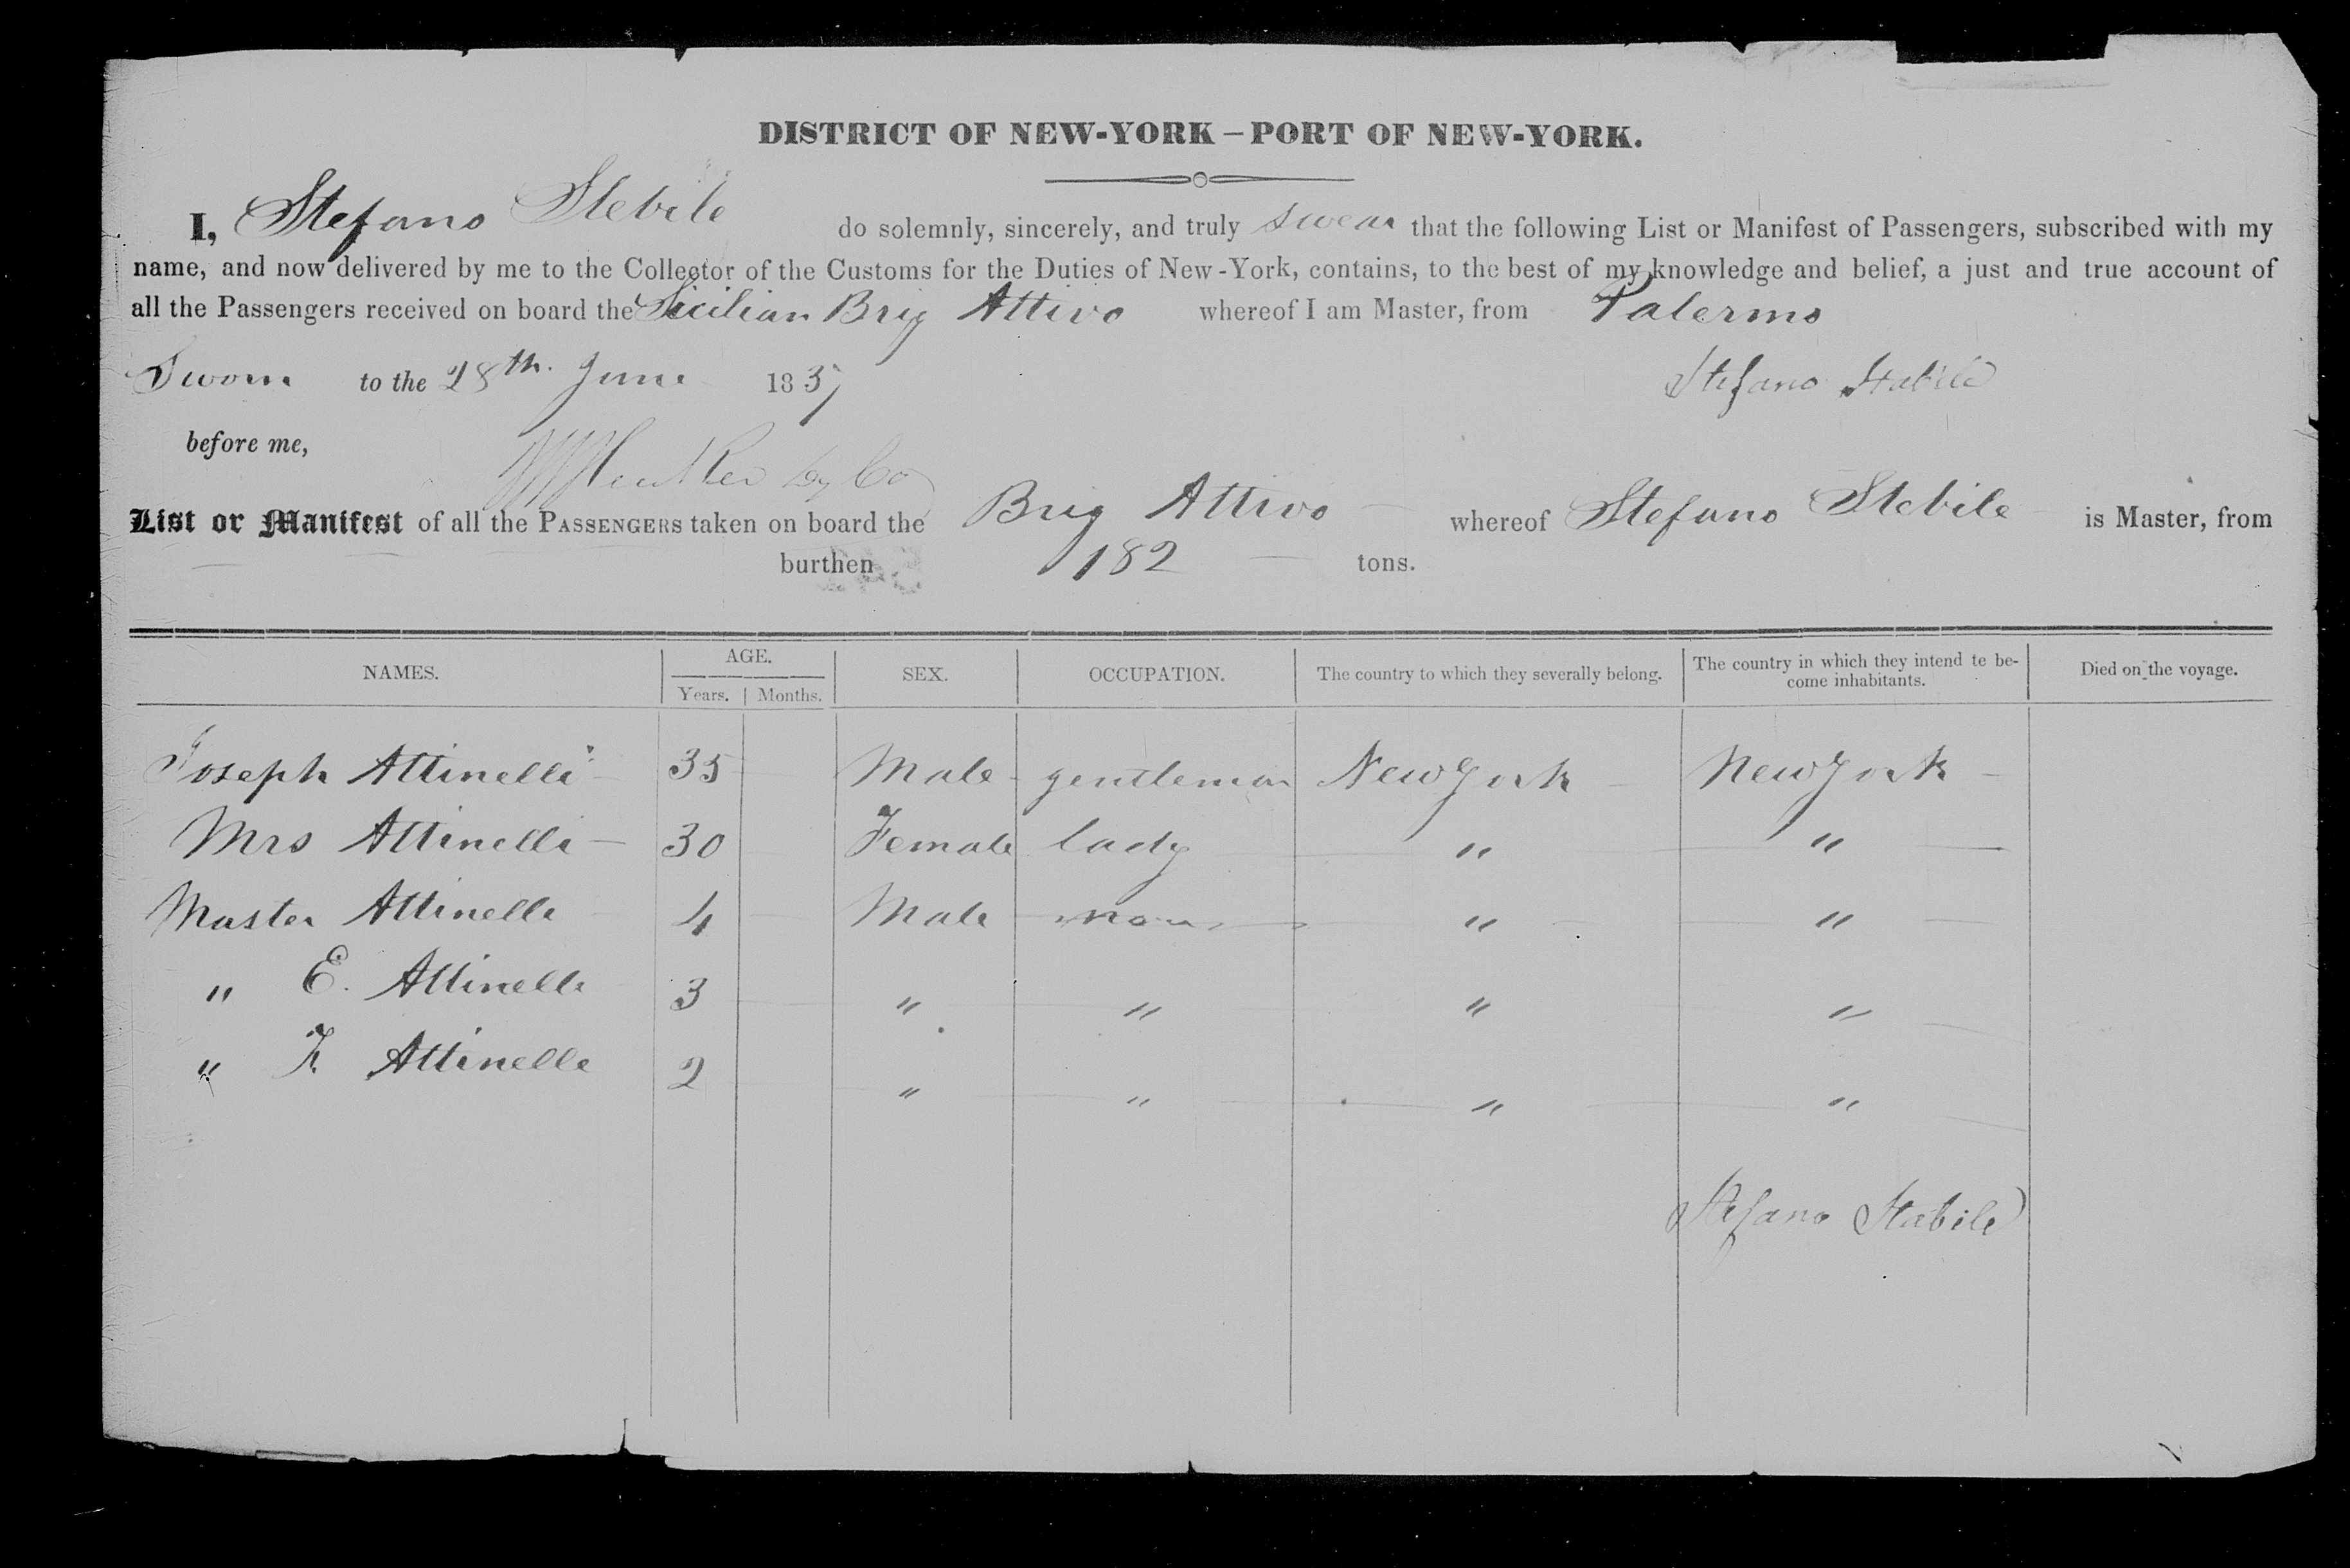 DISTRICT OF NEW-YORK – PORT OF NEW-YORK.
I, Stefano Stebile do solemnly, sincerely, and truly swear that the following List or Manifest of Passengers, subscribed with my
name, and now delivered by me to the Collector of the Customs for the Duties of New-York, contains, to the best of my knowledge and belief, a just and true account of
all the Passengers received on board the Sicilian Brig Attivo whereof I am Master, from Palermo
Sworn to the 28th. June 1837 Stefano Stabile
before me,
List or Manifest of all the PASSENGERS taken on board the Brig Attivo whereof Stefano Stebile is Master, from
burthen 182 tons.
NAMES. AGE. SEX. OCCUPATION. The country to which they severally belong. The country in which they intend te be-
come inhabitants. Died on the voyage.
Years. Months.
Joseph Attinelli 35 Male gentleman New York New York
Mrs Attinelli 30 Female lady " "
Master Attinelli 4 Male none " "
" E. Attinelli 3 " " " "
" F. Attinelli 2 " " " "
Stefano Stabile